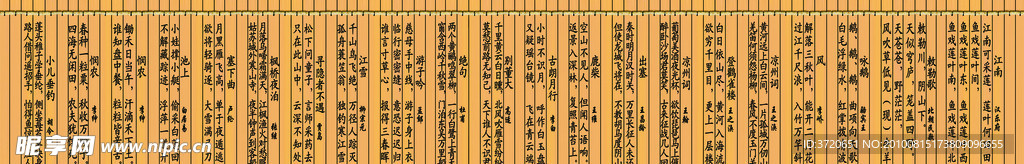 江南
江南可采莲，莲叶何田田
鱼戏莲叶间。鱼戏莲叶东，
鱼戏莲叶西，鱼戏莲叶南，
鱼戏莲叶北。
敕勒歌 北朝民歌
敕勒川，阴山下，
天似穹庐，笼盖四野
天苍苍，野茫茫，
风吹草低见（现）
咏鹅 骆宾王
鹅，鹅，鹅，曲项向天歌
白毛浮绿水，红掌拨
风
解落三秋叶，能开二月花
过江千尺浪，入竹万竿
凉州词 王之涣
黄河远上白云间，一片孤城万仞
羌笛何须怨杨柳，春风不度玉
登鹳雀楼 王之涣
白日依山尽，黄河入海流
欲穷千里目，更上一层楼
凉州词 王翰
葡萄美酒夜光杯，欲饮琵琶马
醉卧沙场君莫笑，古来征战几人
出塞 王昌龄
秦时明月汉时关，万里长征人未
但使龙城飞将在，不教胡马度阴
鹿柴 王维
空山不见人，但闻人语响
返景入深林，复照青苔上
古朗月行 李白
小时不识月，呼作白玉盘
又疑瑶台镜，飞在青云端
别董大 高适
千里黄云白日曛，北风吹雁雪纷
莫愁前路无知己，天下谁人不识
绝句 杜甫
两个黄鹂鸣翠柳，一行白鹭上青
窗含西岭千秋雪，门泊东吴万里
游子吟 孟郊
慈母手中线，游子身上衣
临行密密缝，意恐迟迟归
谁言寸草心，报得三春晖
江雪 柳宗元
千山鸟飞绝，万径人踪灭
孤舟蓑笠翁，独钓寒江雪
寻隐者不遇 贾岛
松下问童子，言师采药去
只在此山中，云深不知处
枫桥夜泊 张继
月落乌啼霜满天，江枫渔火对愁
姑苏城外寒山寺，夜半钟声到客
塞下曲 卢纶
月黑雁飞高，单于夜遁逃
欲将轻骑逐，大雪满弓刀
池上 白居易
小娃撑小艇，偷采白莲回
不解藏踪迹，浮萍一道开
悯农 李绅
锄禾日当午，汗滴禾下土
谁知盘中餐，粒粒皆辛苦
悯农 李绅
春种一粒粟，秋收万颗子
四海无闲田，农夫犹饿死
小儿垂钓 胡令能
蓬头稚子学垂纶，侧坐莓苔
路人借问遥招手，怕得鱼惊
昵图网 www.nipic.cn
ID:3720651 NO:20100815173809096655